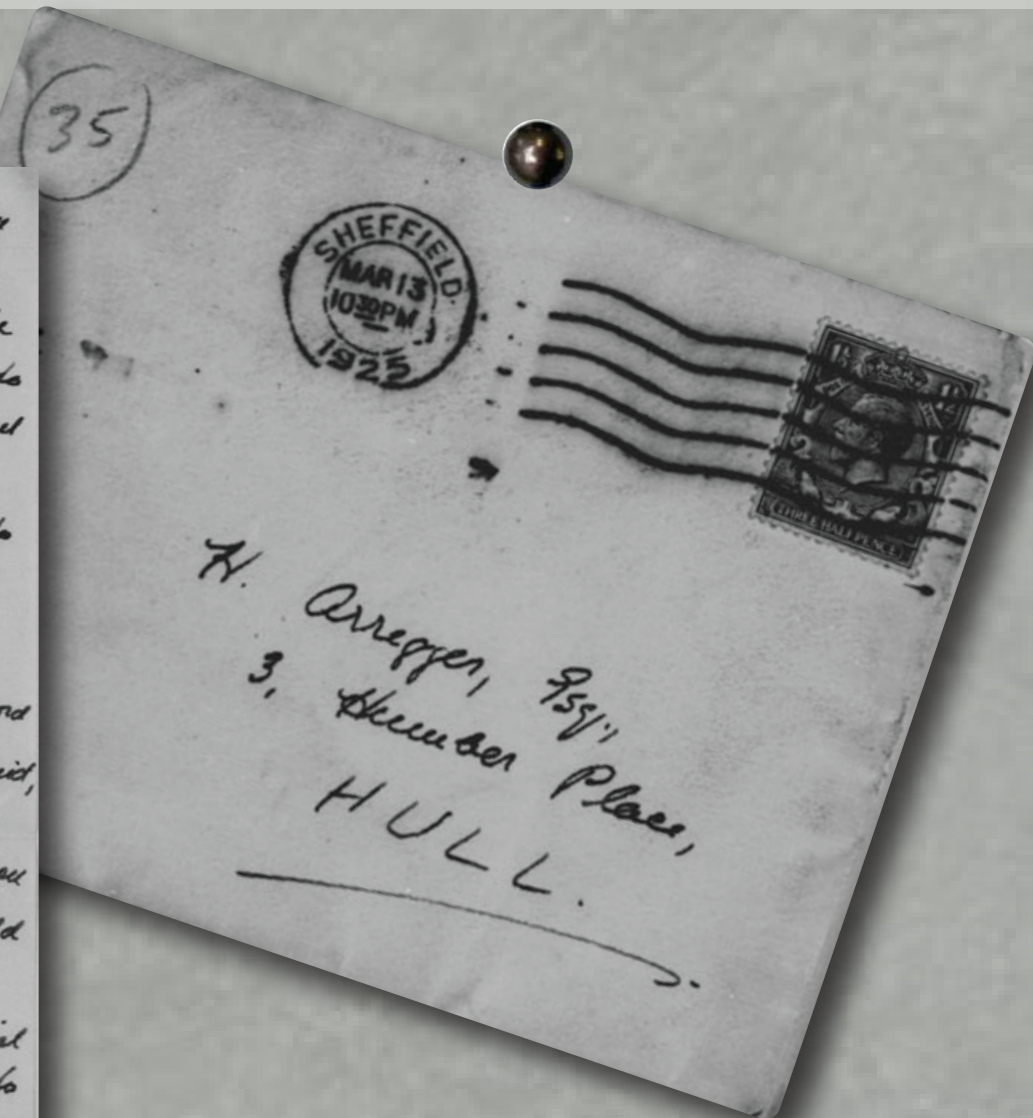 35
SHEFFIELD.
MAR 13
10 30 PM
1925
THREE HALF PENCE
H. Arregger, Esq.,
3, Humber Place,
HULL.
to
nd